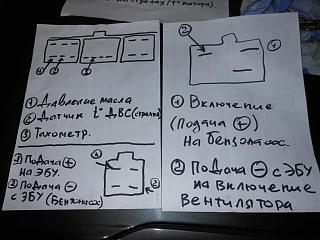 на стрелку (t° мотора).
① ② ③
① Давление масла
② Датчик t° ДВС (стрелка)
③ Тахометр.
① Подача ⊕
на ЭБУ.
② Подача ⊖
с ЭБУ (Бензонасос)
① ②
② ①
① Включение
(Подача ⊕)
На бензонасос.
② Подача ⊖ с ЭБУ
на включение
вентилятора